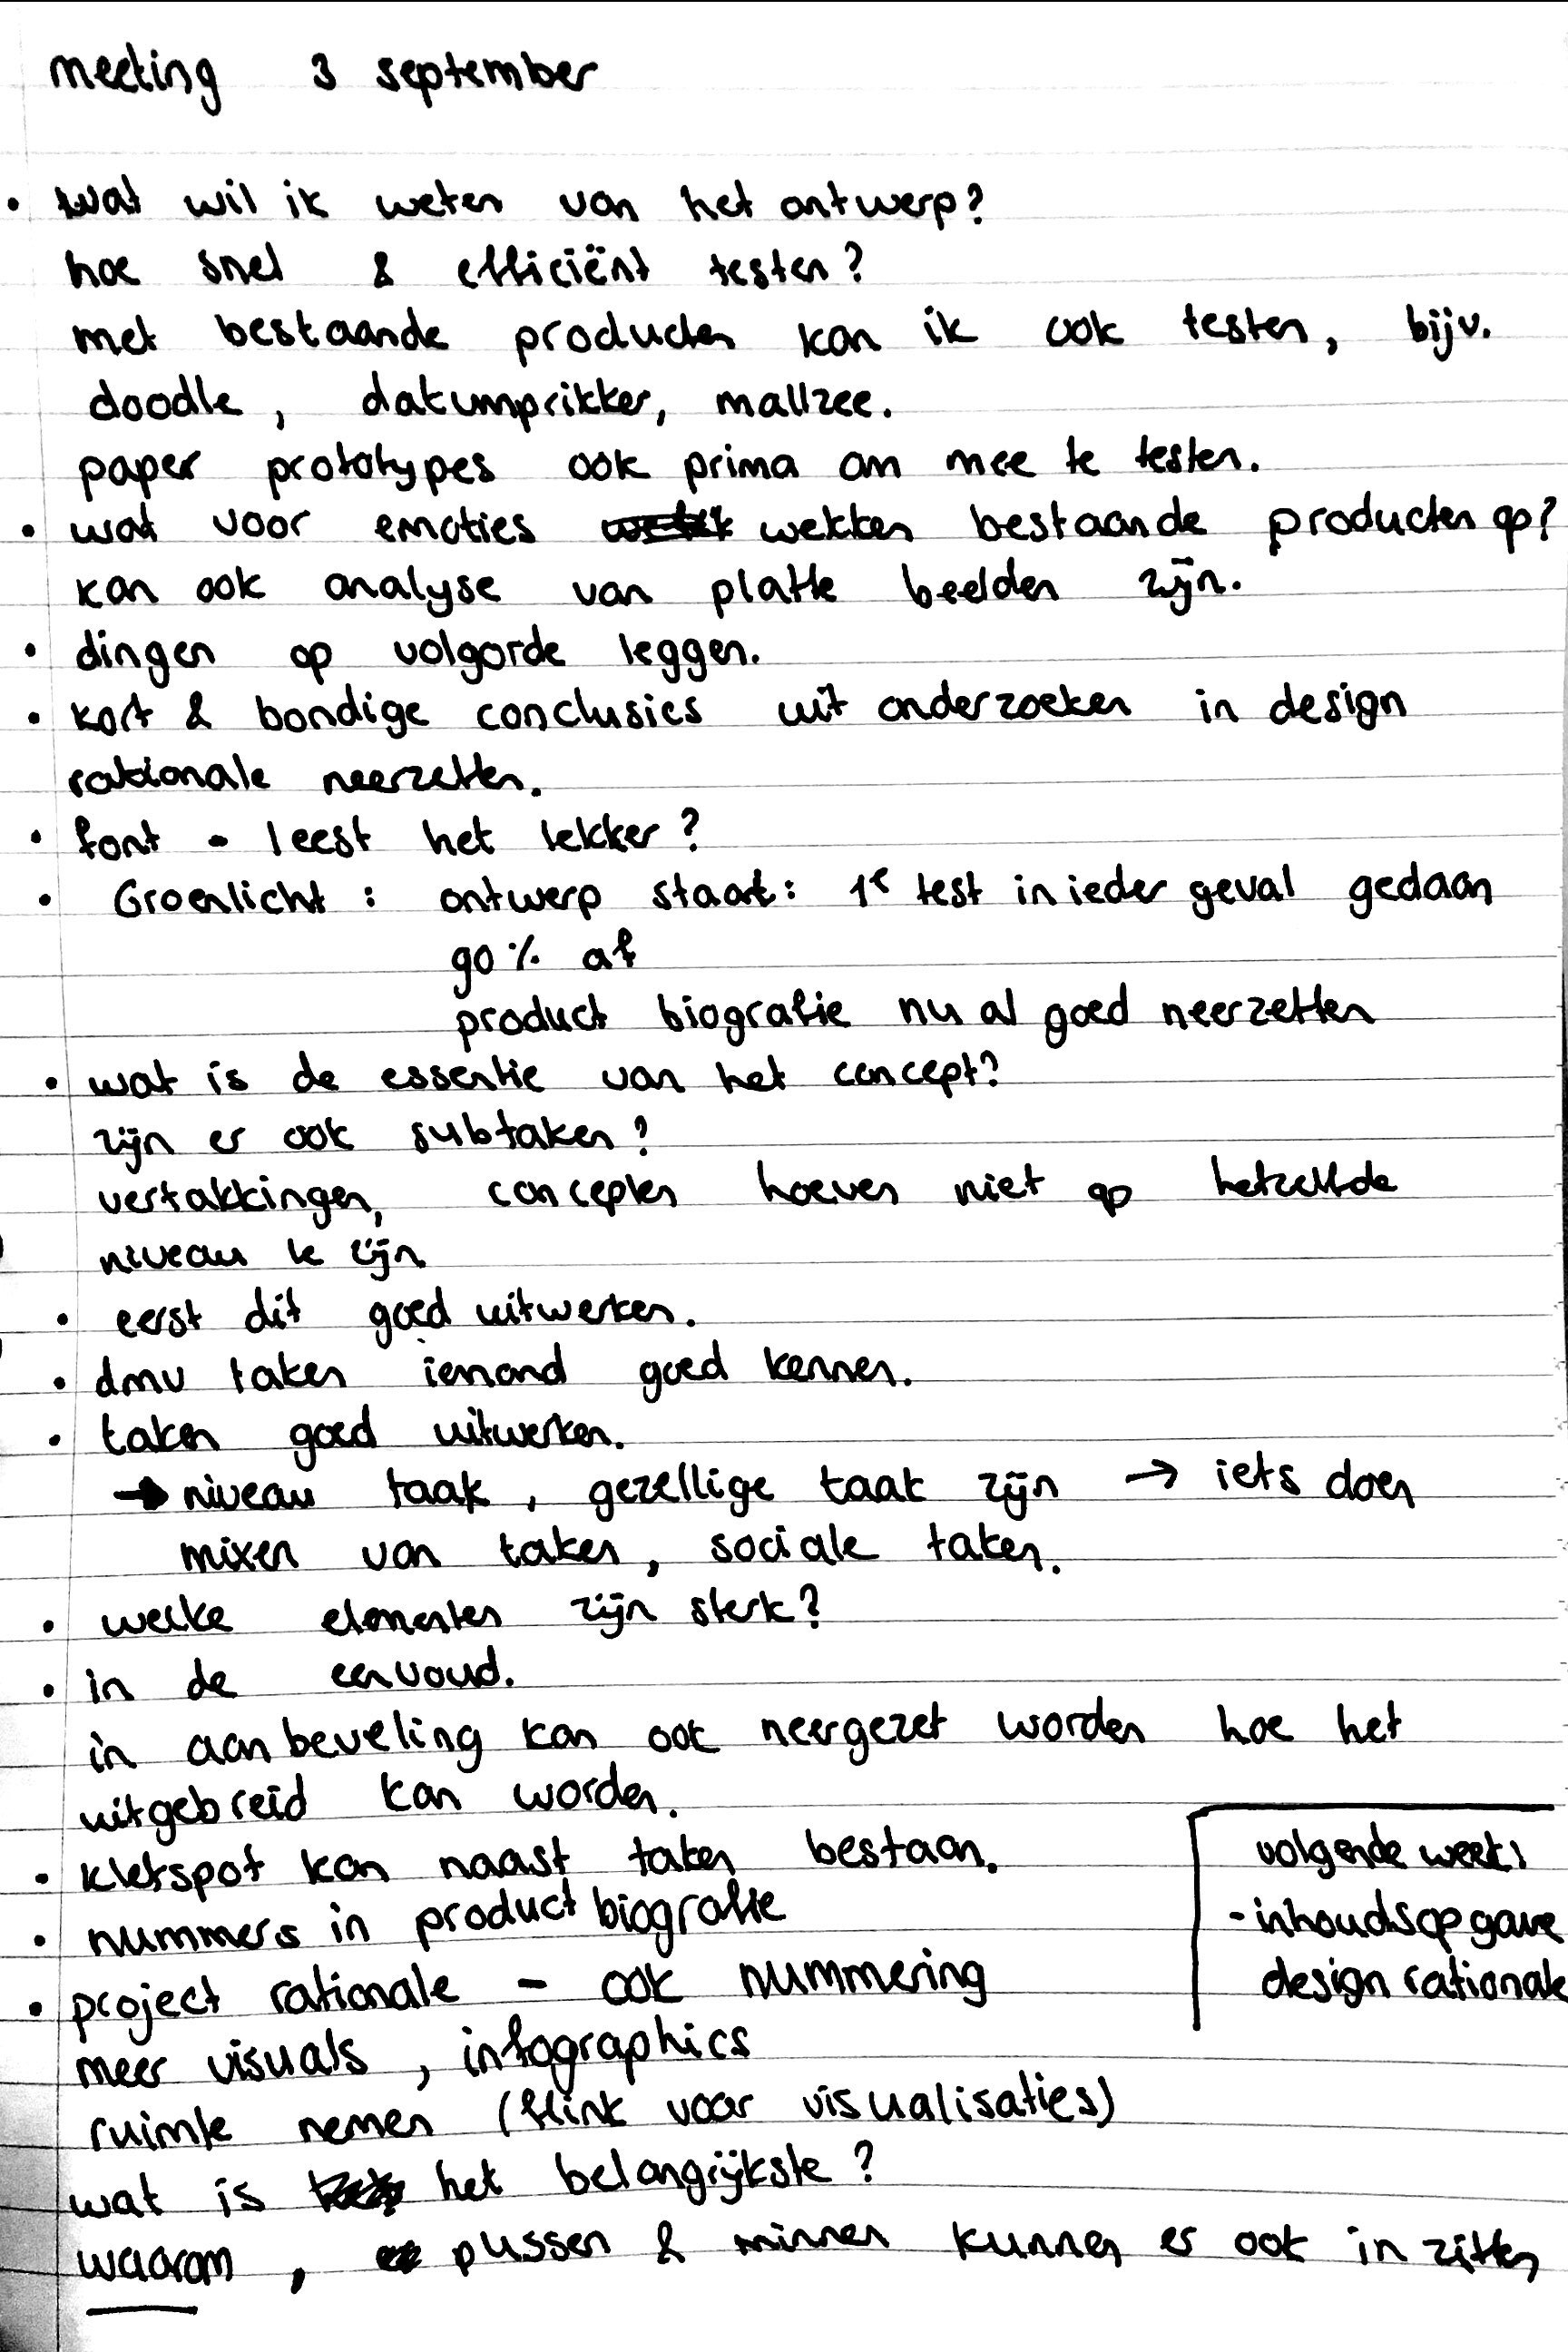 meeting 3 september
• wat wil ik weten van het ontwerp?
hoe snel & efficiënt testen?
met bestaande producten kan ik ook testen, bijv.
doodle, datumprikker, mallzee.
paper prototypes ook prima om mee te testen.
• wat voor emoties wekken bestaande producten op?
kan ook analyse van platte beelden zijn.
• dingen op volgorde leggen.
• kort & bondige conclusies uit onderzoeken in design
rationale neerzetten.
• font - leest het lekker?
• Groenlicht: ontwerp staat: 1e test in ieder geval gedaan
90% af
product biografie nu al goed neerzetten
• wat is de essentie van het concept?
zijn er ook subtaken?
vertakkingen, concepten hoeven niet op hetzelfde
niveau te zijn
• eerst dit goed uitwerken.
• dmv taken iemand goed kennen.
• taken goed uitwerken.
→ niveau taak, gezellige taak zijn → iets doen
mixen van taken, sociale taken.
• welke elementen zijn sterk?
• in de eenvoud.
in aanbeveling kan ook neergezet worden hoe het
uitgebreid kan worden.
• kletspot kan naast taken bestaan.
• nummers in product biografie
• project rationale - ook nummering
meer visuals, infographics
ruimte nemen (flink voor visualisaties)
wat is het belangrijkste?
waarom, plussen & minnen kunnen er ook in zitten
volgende week:
- inhoudsopgave
design rationale